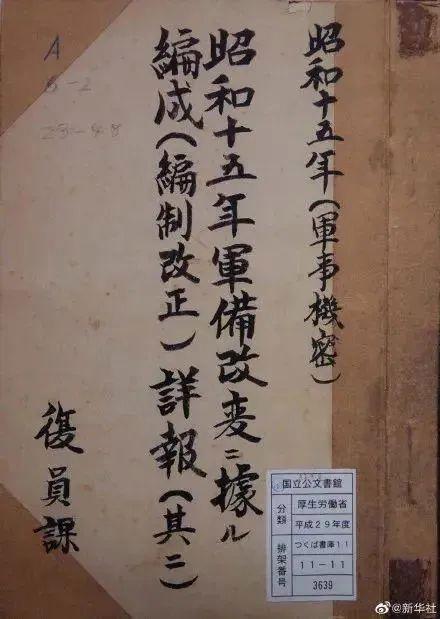 昭和十五年(軍事機密)
昭和十五年軍備改変ニ據ル
編成(編制改正)詳報(其二)
復員課
A
6-2
23-48
国立公文書館
分類
厚生労働省
平成29年度
排架番号
つくば書庫11
11-11
3639
@新华社